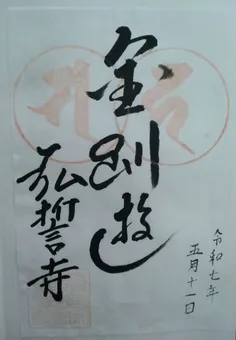 令和七年
五月十一日
金剛
弘誓寺